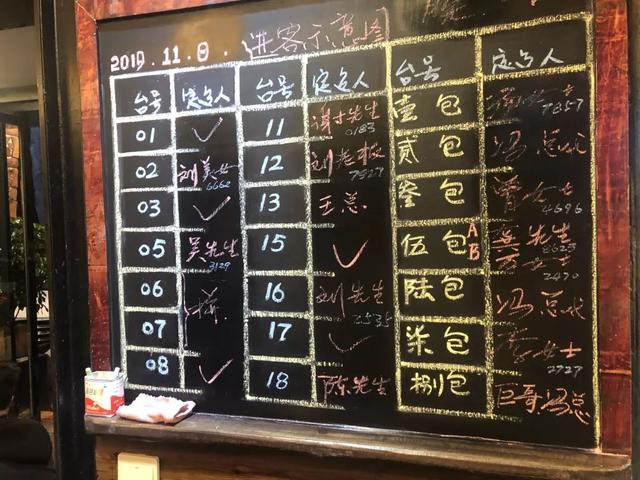 2019.11.8. 进客示意图
台号 定台人 台号 定台人 台号 定台人
01 ✓ 11 谢女先生 0183 壹包 7857
02 刘美女 6662 12 刘老板 7827 贰包 冯总代
03 ✓ 13 王总 叁包 曾女士 4696
05 吴先生 3129 15 ✓ 伍包 A B 龚先生 8623 女士 2470
06 16 刘先生 2535 陆包 冯总代
07 17 ✓ 柒包 李女士 2727
08 ✓ 18 陈先生 捌包 巨哥冯总